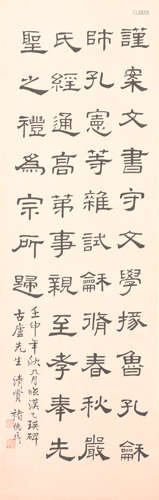 謹案文書守文學掾魯孔
師孔憲等雜試龢脩春秋嚴
氏經通高第事親至孝奉先
聖之禮為宗所歸
壬申年秋八月臨漢乙瑛碑
古廬先生清賞 褚德彝